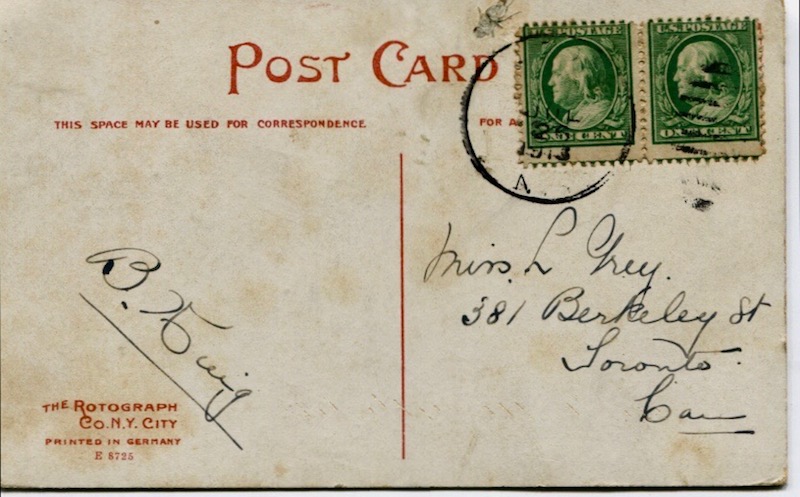 POST CARD
THIS SPACE MAY BE USED FOR CORRESPONDENCE
FOR A
U.S. POSTAGE
ONE CENT
U.S. POSTAGE
ONE CENT
1913
A
Miss. L Grey.
381 Berkeley St
Toronto.
Can
B. King
THE ROTOGRAPH
CO. N.Y. CITY
PRINTED IN GERMANY
E 8725